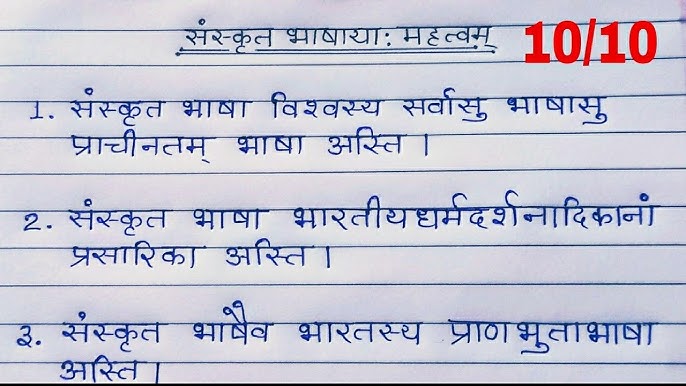 संस्कृत भाषाया: महत्वम्
10/10
1. संस्कृत भाषा विश्वस्य सर्वासु भाषासु
प्राचीनतम् भाषा अस्ति।
2. संस्कृत भाषा भारतीयधर्मदर्शनादिकानां
प्रसारिका अस्ति।
३. संस्कृत भाषैव भारतस्य प्राणभुताभाषा
अस्ति।